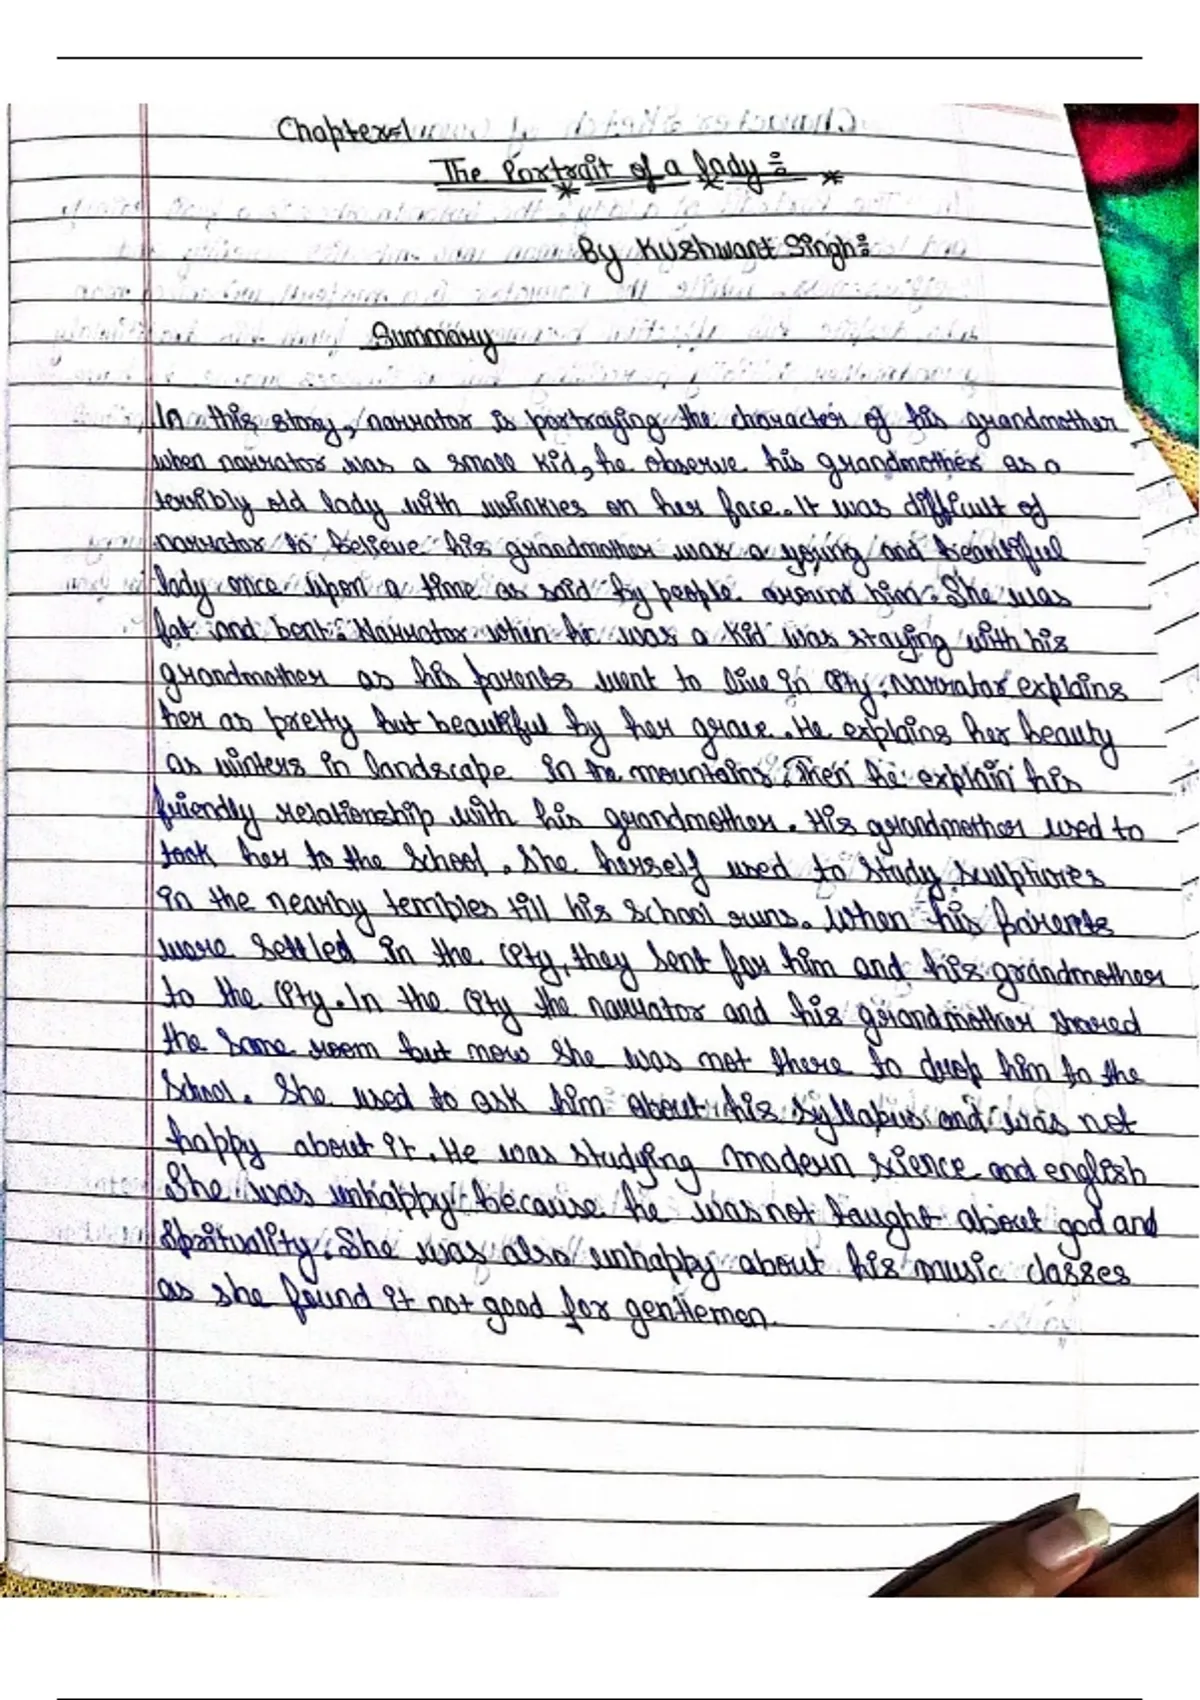 Chapter-1
The Portrait of a lady :-
By Kushwant Singh:
Summary
In this story, narrator is portraying the character of his grandmother
when narrator was a small kid, he observe his grandmother as a
terribly old lady with wrinkles on her face. It was difficult of
narrator to believe his grandmother was a young and beautiful
lady once upon a time as said by people around him. She was
fat and bent. Narrator when he was a kid was staying with his
grandmother as his parents went to live in city. Narrator explains
her as pretty but beautiful by her grace. He explains her beauty
as winters in landscape in the mountains. Then he explain his
friendly relationship with his grandmother. His grandmother used to
took her to the school. She herself used to study sculptures
in the nearby temples till his school runs. When his parents
were settled in the city, they sent for him and his grandmother
to the city. In the city the narrator and his grandmother shared
the same room but now she was not there to drop him to the
School. She used to ask him about his syllabus and was not
happy about it. He was studying modern science and english
She was unhappy because he was not taught about god and
Spirituality. She was also unhappy about his music classes
as she found it not good for gentlemen.